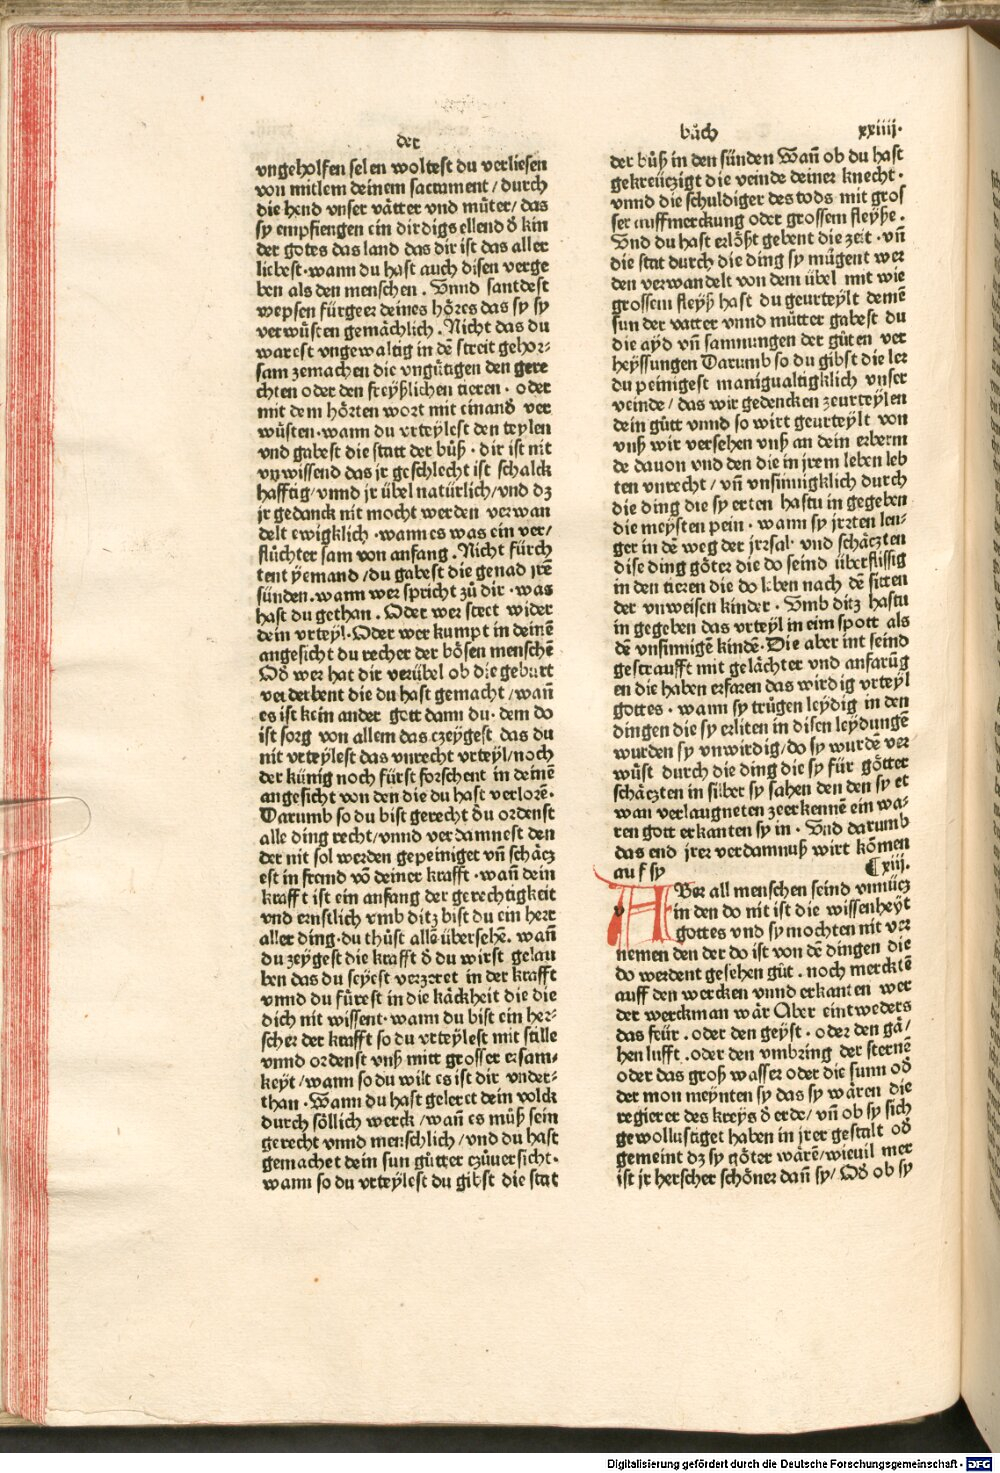 der
bůch
xxiiij.
vngeholfen selen woltest du verliesen
von mitlem deinem sacrament / durch
die hend vnser våtter vnd můter / das
sy empfiengen ein dirdigs ellend d̕ kin
der gotes das land das dir ist das aller
liebest · wann du hast auch disen verge
ben als den menschen . Vnnd santdest
wepsen fürgeer deines hőres das sy sy
verwůsten gemåchlich . Nicht das du
warest vngewaltig in dē streit gehor⸗
sam zemachen die vngütigen den gere
chten oder den freyßlichen tieren · oder
mit dem hőrten wort mit einand̕ ver
wůsten · wann du vrteylest den teylen
vnd gabest die statt der bůß · dir ist nit
vnwissend das jr geschlecht ist schalck
hafftig / vnnd jr übel natürlich / vnd dz
jr gedanck nit mocht werden verwan
delt ewigklich · wann es was ein ver /
flůchter sam von anfang . Nicht fürch
tent ÿemand / du gabest die genad jrē
sünden . wann wer spricht zů dir · was
hast du gethan . Oder wer steet wider
dein vrteyl · Oder wer kumpt in deinē
angesicht du recher der bősen menschē
Od̕ wer hat dir verübel ob die geburt
verderbent die du hast gemacht / wañ
es ist kein ander gott dann du · dem do
ist sorg von allem das czeygest das du
nit vrteylest das vnrecht vrteyl / noch
der künig noch fürst forschent in deinē
angesicht von den die du hast verlorē ·
Darumb so du bist gerecht du ordenst
alle ding recht / vnnd verdamnest den
der nit sol werden gepeiniget vñ schåcz
est in fremd vō deiner krafft · wañ dein
krafft ist ein anfang der gerechtigkeit
vnd ernstlich vmb ditz bist du ein herr
aller ding · du thůst allē übersehē . wañ
du zeygest die krafft d̕ du wirst gelau
ben das du seyest verzeret in der krafft
vnnd du fürest in die kåckheit die die
dich nit wissent · wann du bist ein her⸗
scher der krafft so du vrteylest mit stille
vnnd ordenst vnß mitt grosser ersam⸗
keyt / wann so du wilt es ist dir vnder⸗
than . Wann du hast geleret dein volck
durch sőllich werck / wañ es můß sein
gerecht vnnd menschlich / vnd du hast
gemachet dein sun gůtter czůuersicht ·
wann so du vrteylest du gibst die stat
der bůß in den sünden Wañ ob du hast
gekreüczigt die veinde deiner knecht ·
vnnd die schuldiger des tods mit gros
ser auffmerckung oder grossem fleyße .
Vnd du hast erlőßt gebent die zeit · vñ
die stat durch die ding sy mügent wer
den verwandelt von dem übel mit wie
grossem fleyß hast du geurteylt deinē
sun der vatter vnnd můtter gabest du
die ayd vñ samnungen der gůten ver
heyssungen Darumb so du gibst die ler
du peinigest manigualtigklich vnser
veinde / das wir gedencken zeurteylen
dein gůtt vnnd so wirt geurteylt von
vnß wir versehen vnß an dein erberm
de dauon vnd den die in jrem leben leb
ten vnrecht / vñ vnsinnigklich durch
die ding die sy erten hastu in gegeben
die meysten pein · wann sy jrrten len⸗
ger in dē weg der jrrsal · vnd schåczten
dise ding gőter die do seind überflissig
in den tieren die do leben nach dē sitten
der vnweisen kinder . Vmb ditz hastu
in gegeben das vrteyl in eim spott als
dē vnsinnigē kindē · Die aber int seind
gestraufft mit gelåchter vnd anfarüg
en die haben erfaren das wirdig vrteyl
gottes · wann sy trůgen leydig in den
dingen die sy erliten in disen leydungē
wurden sy vnwirdig / do sy wurdē ver
wůst durch die ding die sy für gőtter
schåczten in silber sy sahen den den sy et
wan verlaugneten zeerkennē ein wa⸗
ren gott erkanten sy in . Vnd darumb
das end jrer verdamnuß wirt kőmen
auf sy
¶ xiij.
ABer all menschen seind vnnücz
in den do nit ist die wissenheyt
gottes vnd sy mochten nit ver
nemen den der do ist von dē dingen die
do werdent gesehen gůt . noch mercktē
auff den wercken vnnd erkanten wer
der werckman wår Aber eintweders
das feür . oder den geyst . oder den gå /
hen lufft . oder den vmbring der sternē
oder das groß wasser oder die sunn od̕
der mon meynten sy das sy wåren die
regierer des kreyß d̕ erde / vñ ob sy sich
gewollustiget haben in jrer gestalt od̕
gemeint dz sy gőter wårē / wieuil mer
ist jr herscher schőner dañ sy / Od̕ ob sy
Digitalisierung gefördert durch die Deutsche Forschungsgemeinschaft - DFG